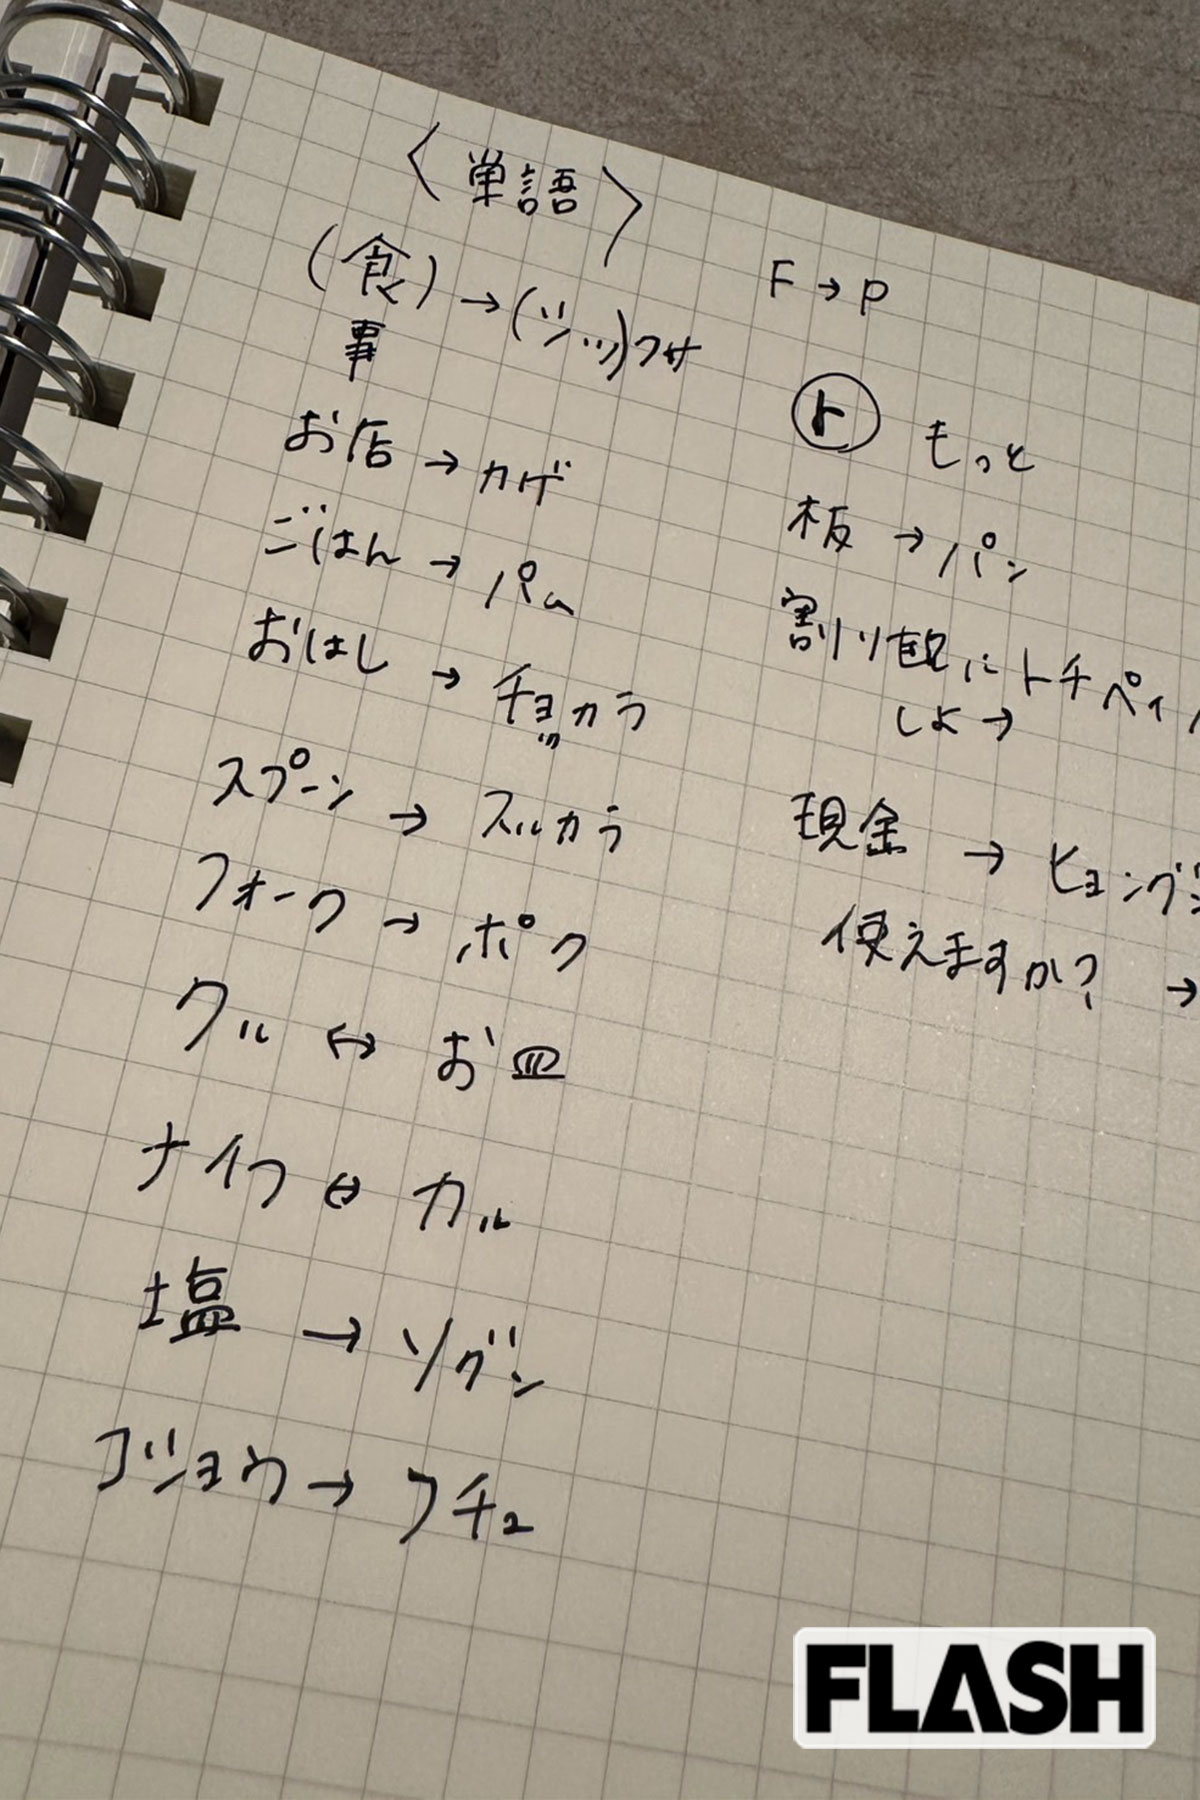 〈単語〉
(食)→(ツッ)クサ
事
お店→カゲ
ごはん→パム
おはし→チョッカラ
スプーン→スルカラ
フォーク→ポク
クル↔お皿
ナイフ⇔カル
塩→ソグン
コショウ→フチュ
F→P
ト もっと
板→パン
割り勘に トチペイ
しよ→
現金→ヒョング
使えますか?→
FLASH